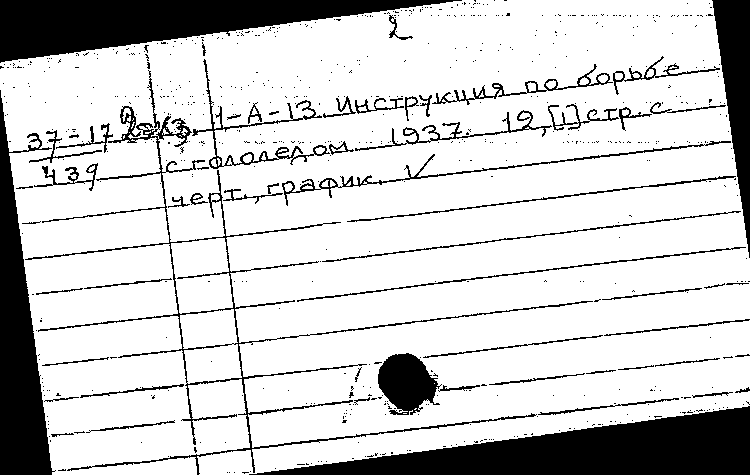 2
37-17 1-А-13. Инструкция по борьбе
439 с гололедом 1937. 19, [1] стр. с
черт., график. ✓